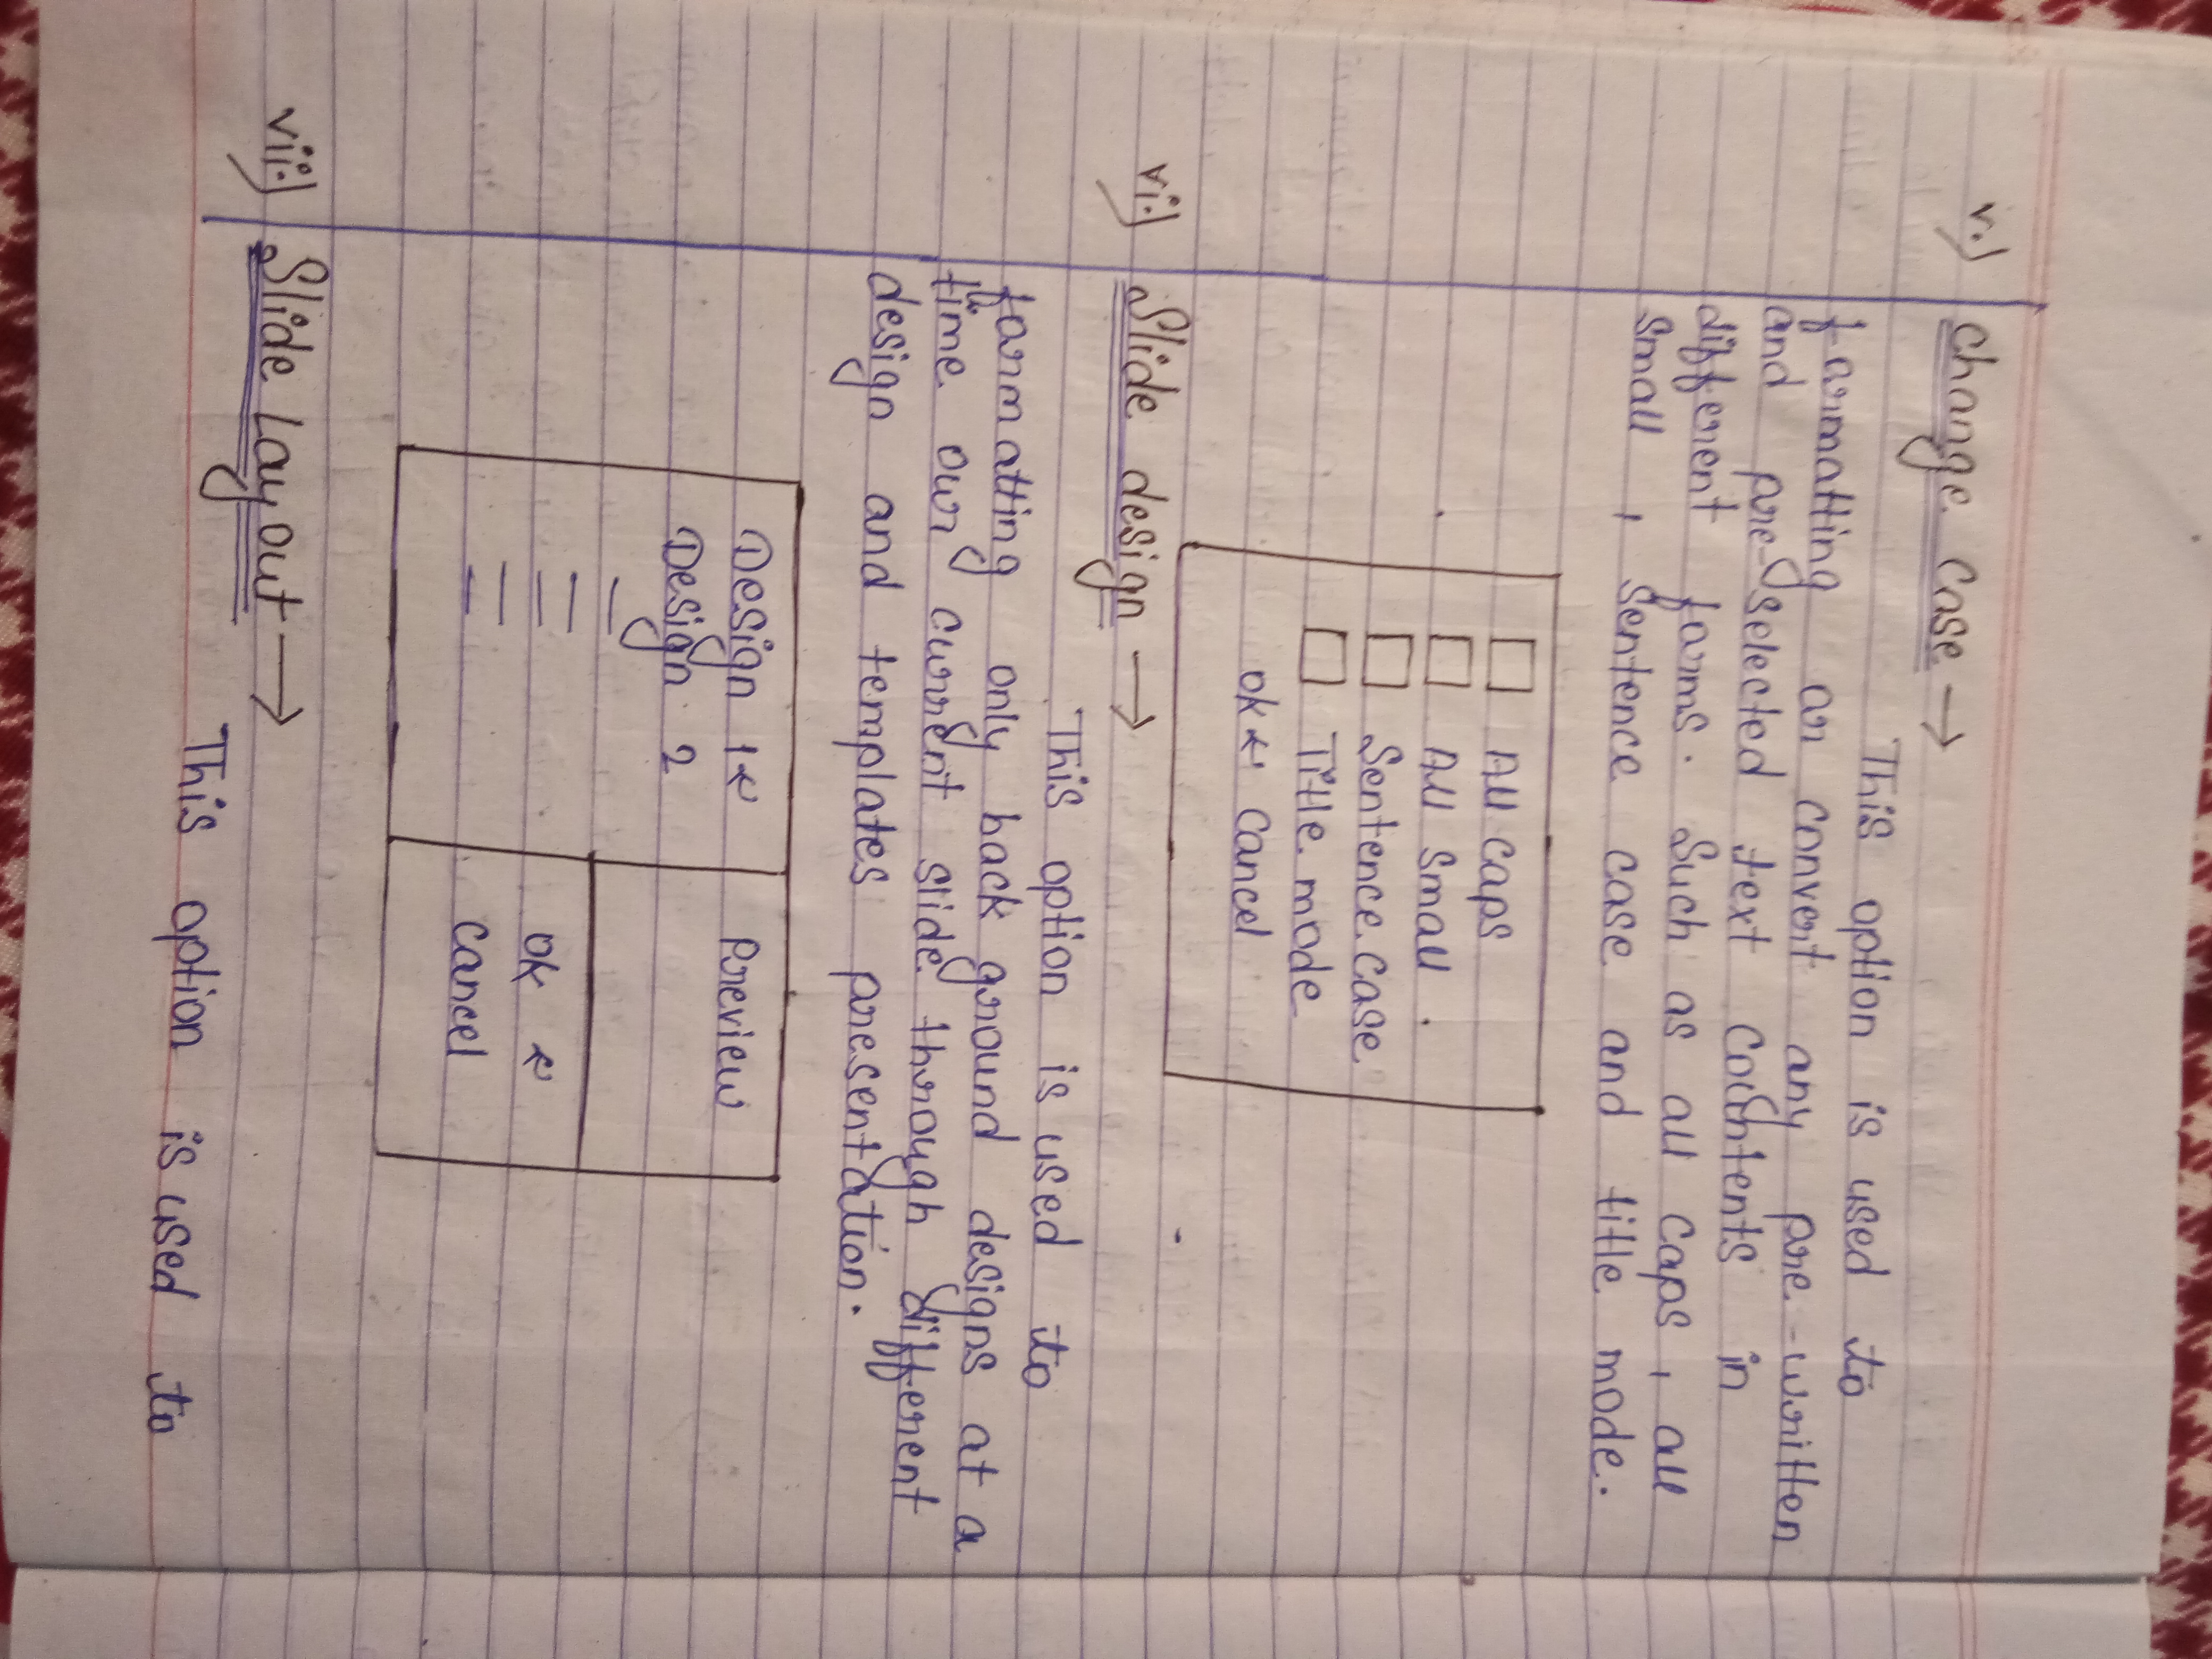 v.) Change case →
This option is used to
formatting or convert any pre-written
and pre-selected text contents in
different forms. Such as all caps, all
small, sentence case and title mode.
All caps
All small.
Sentence case
Title mode
ok ↲ cancel
vi.) Slide design →
This option is used to
formatting only back ground designs at a
time our current slide through different
design and templates presentation.
Design 1 ↲ Preview
Design 2
ok ↲
cancel
vii.) Slide Layout →
This option is used to